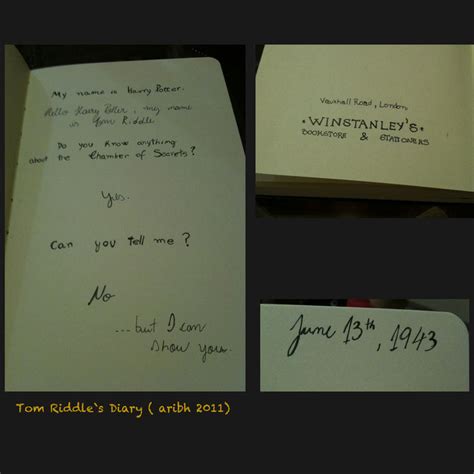 My name is Harry Potter.
Hello Harry Potter, my name
is Tom Riddle.
Do you know anything
about the Chamber of Secrets?
Yes.
Can you tell me?
No
...but I can
show you.
Vauxhall Road, London
• WINSTANLEY'S •
BOOKSTORE & STATIONERS
June 13th, 1943
Tom Riddle`s Diary ( aribh 2011)